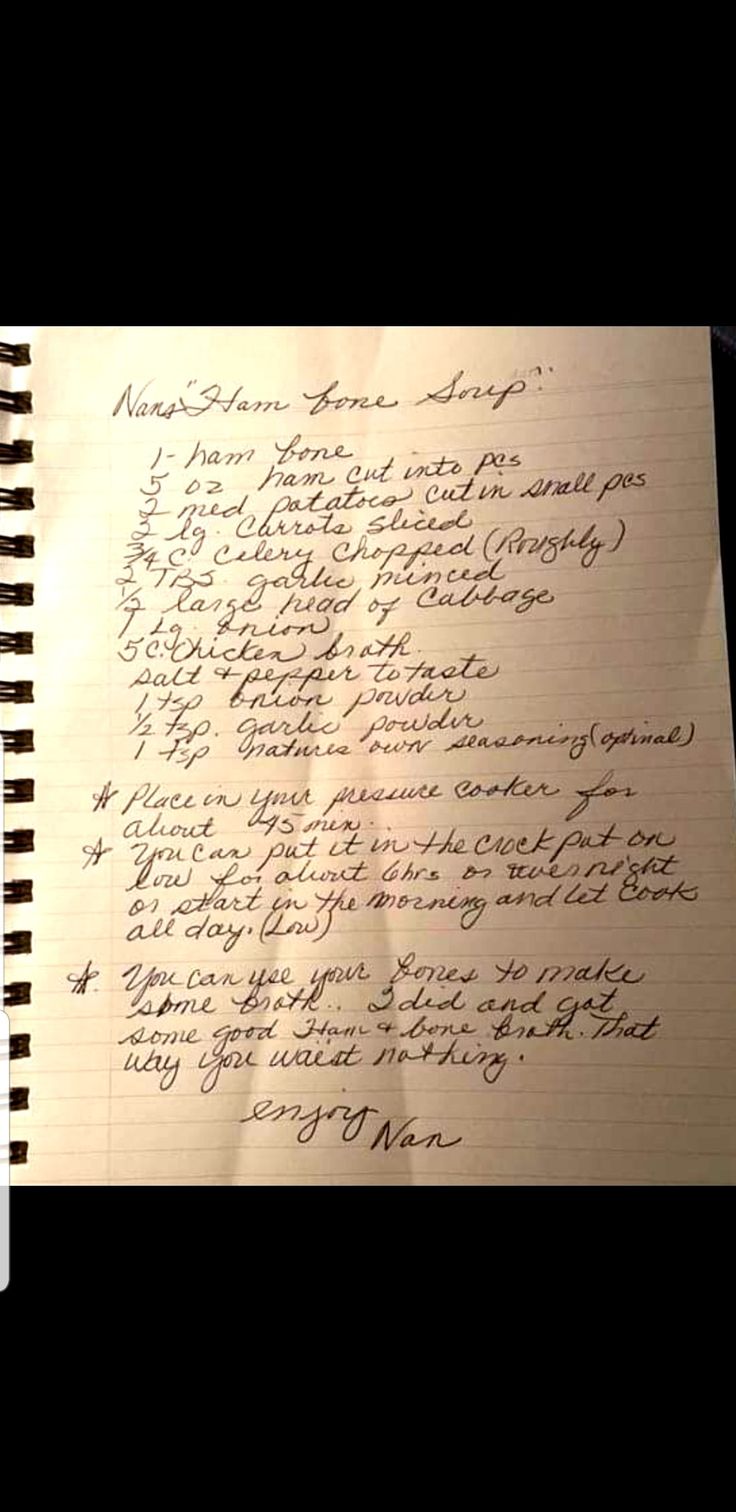 Nans "Ham bone Soup"
1- ham bone
5 oz ham cut into pcs
2 med potatoes cut in small pcs
2 lg. Carrots sliced
3/4 C. Celery chopped (Roughly)
2 TBS. garlic minced
1/2 large head of Cabbage
1 Lg. Onion
5 C. Chicken broth.
salt & pepper to taste
1 tsp onion powder
1/2 tsp. garlic powder
1 tsp natures own seasoning (optinal)
☆ Place in your pressure cooker for
about 45 min.
☆ You can put it in the crock pot on
low for about 6 hrs or overnight
or start in the morning and let cook
all day. (Low)
☆. You can use your bones to make
some broth.. I did and got
some good Ham & bone broth. That
way you waist nothing.
enjoy
Nan